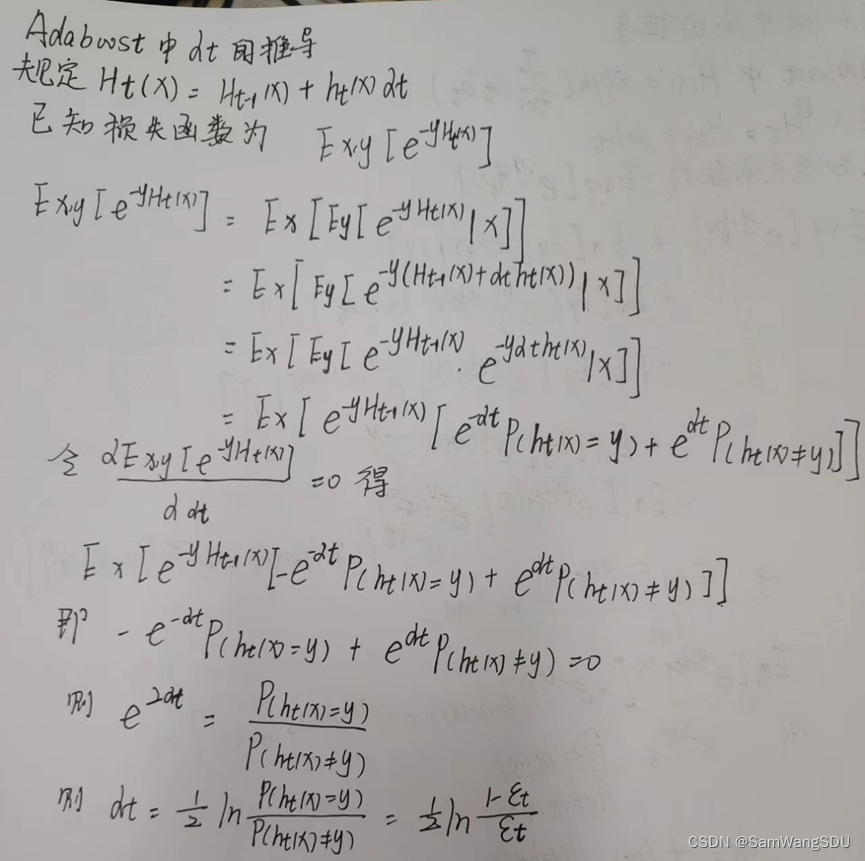 Adaboost中αt的推导
规定 Ht(x) = Ht-1(x) + ht(x)αt
已知损失函数为 Ex,y[e^-yHt(x)]
Ex,y[e^-yHt(x)] = Ex[Ey[e^-yHt(x)|x]]
= Ex[Ey[e^-y(Ht-1(x)+αtht(x))|x]]
= Ex[Ey[e^-yHt-1(x)·e^-yαtht(x)|x]]
= Ex[e^-yHt-1(x)[e^-αtP(ht(x)=y)+e^αtP(ht(x)≠y)]]
令 dEx,y[e^-yHt(x)]
d αt
=0 得
Ex[e^-yHt-1(x)[-e^-αtP(ht(x)=y)+e^αtP(ht(x)≠y)]]
即 -e^-αtP(ht(x)=y) + e^αtP(ht(x)≠y)=0
则 e^2αt = P(ht(x)=y)
P(ht(x)≠y)
则 αt = 1/2 ln P(ht(x)=y)/P(ht(x)≠y) = 1/2 ln 1-εt/εt
CSDN @SamWangSDU